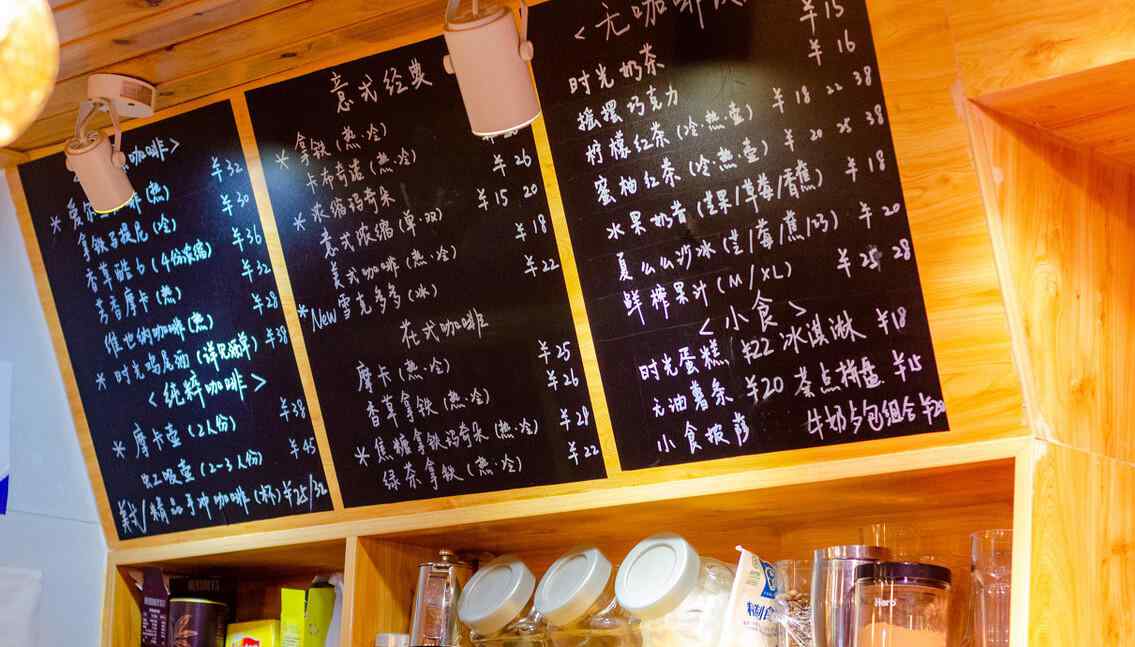 咖啡>
¥32
拿铁马提尼(冷) ¥30
香草醋6(4份浓缩) ¥36
芳香摩卡(热) ¥32
维也纳咖啡(热) ¥28
*时光鸡尾酒(详见酒单) ¥38
<纯粹咖啡>
*摩卡壶(2人份) ¥38
虹吸壶(2-3人份) ¥45
美式/精品手冲咖啡(杯)¥25/32
意式经典
*拿铁(热·冷)
卡布奇诺(热·冷) ¥26
*浓缩玛奇朵 ¥15 20
意式浓缩(单·双) ¥18
美式咖啡(热·冷) ¥22
*New雪克多多(冰)
花式咖啡
摩卡(热·冷) ¥25
香草拿铁(热·冷) ¥26
*焦糖拿铁玛奇朵(热·冷)
绿茶拿铁(热·冷) ¥22
<无咖啡
¥15
时光奶茶 ¥16
摇摆巧克力
柠檬红茶(冷·热·壶) ¥18 22 38
蜜柚红茶(冷·热·壶) ¥20 25 38
水果奶昔(芒果/草莓/香蕉) ¥18
夏么么沙冰(芒/莓/蕉/巧) ¥20
鲜榨果汁(M/XL) ¥25 28
<小食>
时光蛋糕 ¥22 冰淇淋 ¥18
无油薯条 ¥20 茶点拼盘 ¥15
小食披萨 牛奶面包组合¥20
Hero